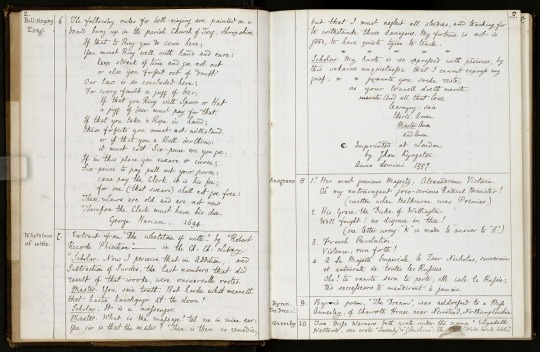 2
Bell-ringing
Tong.
6
The following rules for bell-ringing are painted on a
board hung up in the parish Church of Tong, Shropshire.
If that to Ring you do come here,
You must Ring well with hand and eare;
keep stroak of time and goe not out
or else you forfeit out of doubt
Our law is so concluded here;
For every fault a jugg of beer.
If that you Ring with Spurr or Hat
a jugg of beer must pay for that.
If that you take a Rope in hand;
These forfeits you must not withstand.
or if that you a Bell overthrow;
it must cost Six-pence ere you goe.
If in this place you sweare or curse;
Six-pence to pay pull out your purse.
come pay the Clerk it is his fee;
for one (that swears) shall not goe free.
These Laws are old and are not new.
Therefore the Clerk must have his due.
George Harison. 1694.
Whetstone
of witte.
7.
Extract from "The whetstone of witte" by "Robert
Recorde Phisition" in the Ch: Ch: Library.
"Scholar. Now I perceive that in Addition, and
Subtraction of Surdes, the last nombers that did
result of that worke, were universalle rootes.
Master. You saie truth. But harke what meaneth
that hastie knockyng at the doore?
Scholar. It is a messenger.
Master. What is the message? tel me in mine eare.
Yea sir is that the matter? Then is there no remedie,
3.
but that I must neglect all studies, and teaching, for
to withstande those daungers. My fortune is not so
good, to have quiet tyme to teache.
Scholar. My harte is so oppressed with
this sodaine unquietnesse that I cannot expresse my
grief.
Imprinted at London
by Jhon Kyngston
Anno domini 1557.
Anagrams
8
1. Her most gracious Majesty, Alexandrina Victoria.
Ah my extravagant joco-serious radical Minister!
(written when Melbourne was Premier)
2. His Grace the Duke of Wellington.
Well fought! no disgrace in thee!
(one letter wrong "K" is made to answer to
3. French Revolution.
Violence, run forth!
4. A La Majesté Impériale le Tsar Nicholas, souverain
et autocrate de toutes les Russies.
Oh! ta vanité sera ta perte; elle isole la Russie;
tes successeurs te maudiront à jamais.
Byron.
"The Dream"
9.
Byron's poem, "The Dream", was addressed to a Miss
Annesley, of Chaworth House near Newstead,
10.
Two Miss Warners both wrote under the name "Elizabeth
Wetherell", one wrote